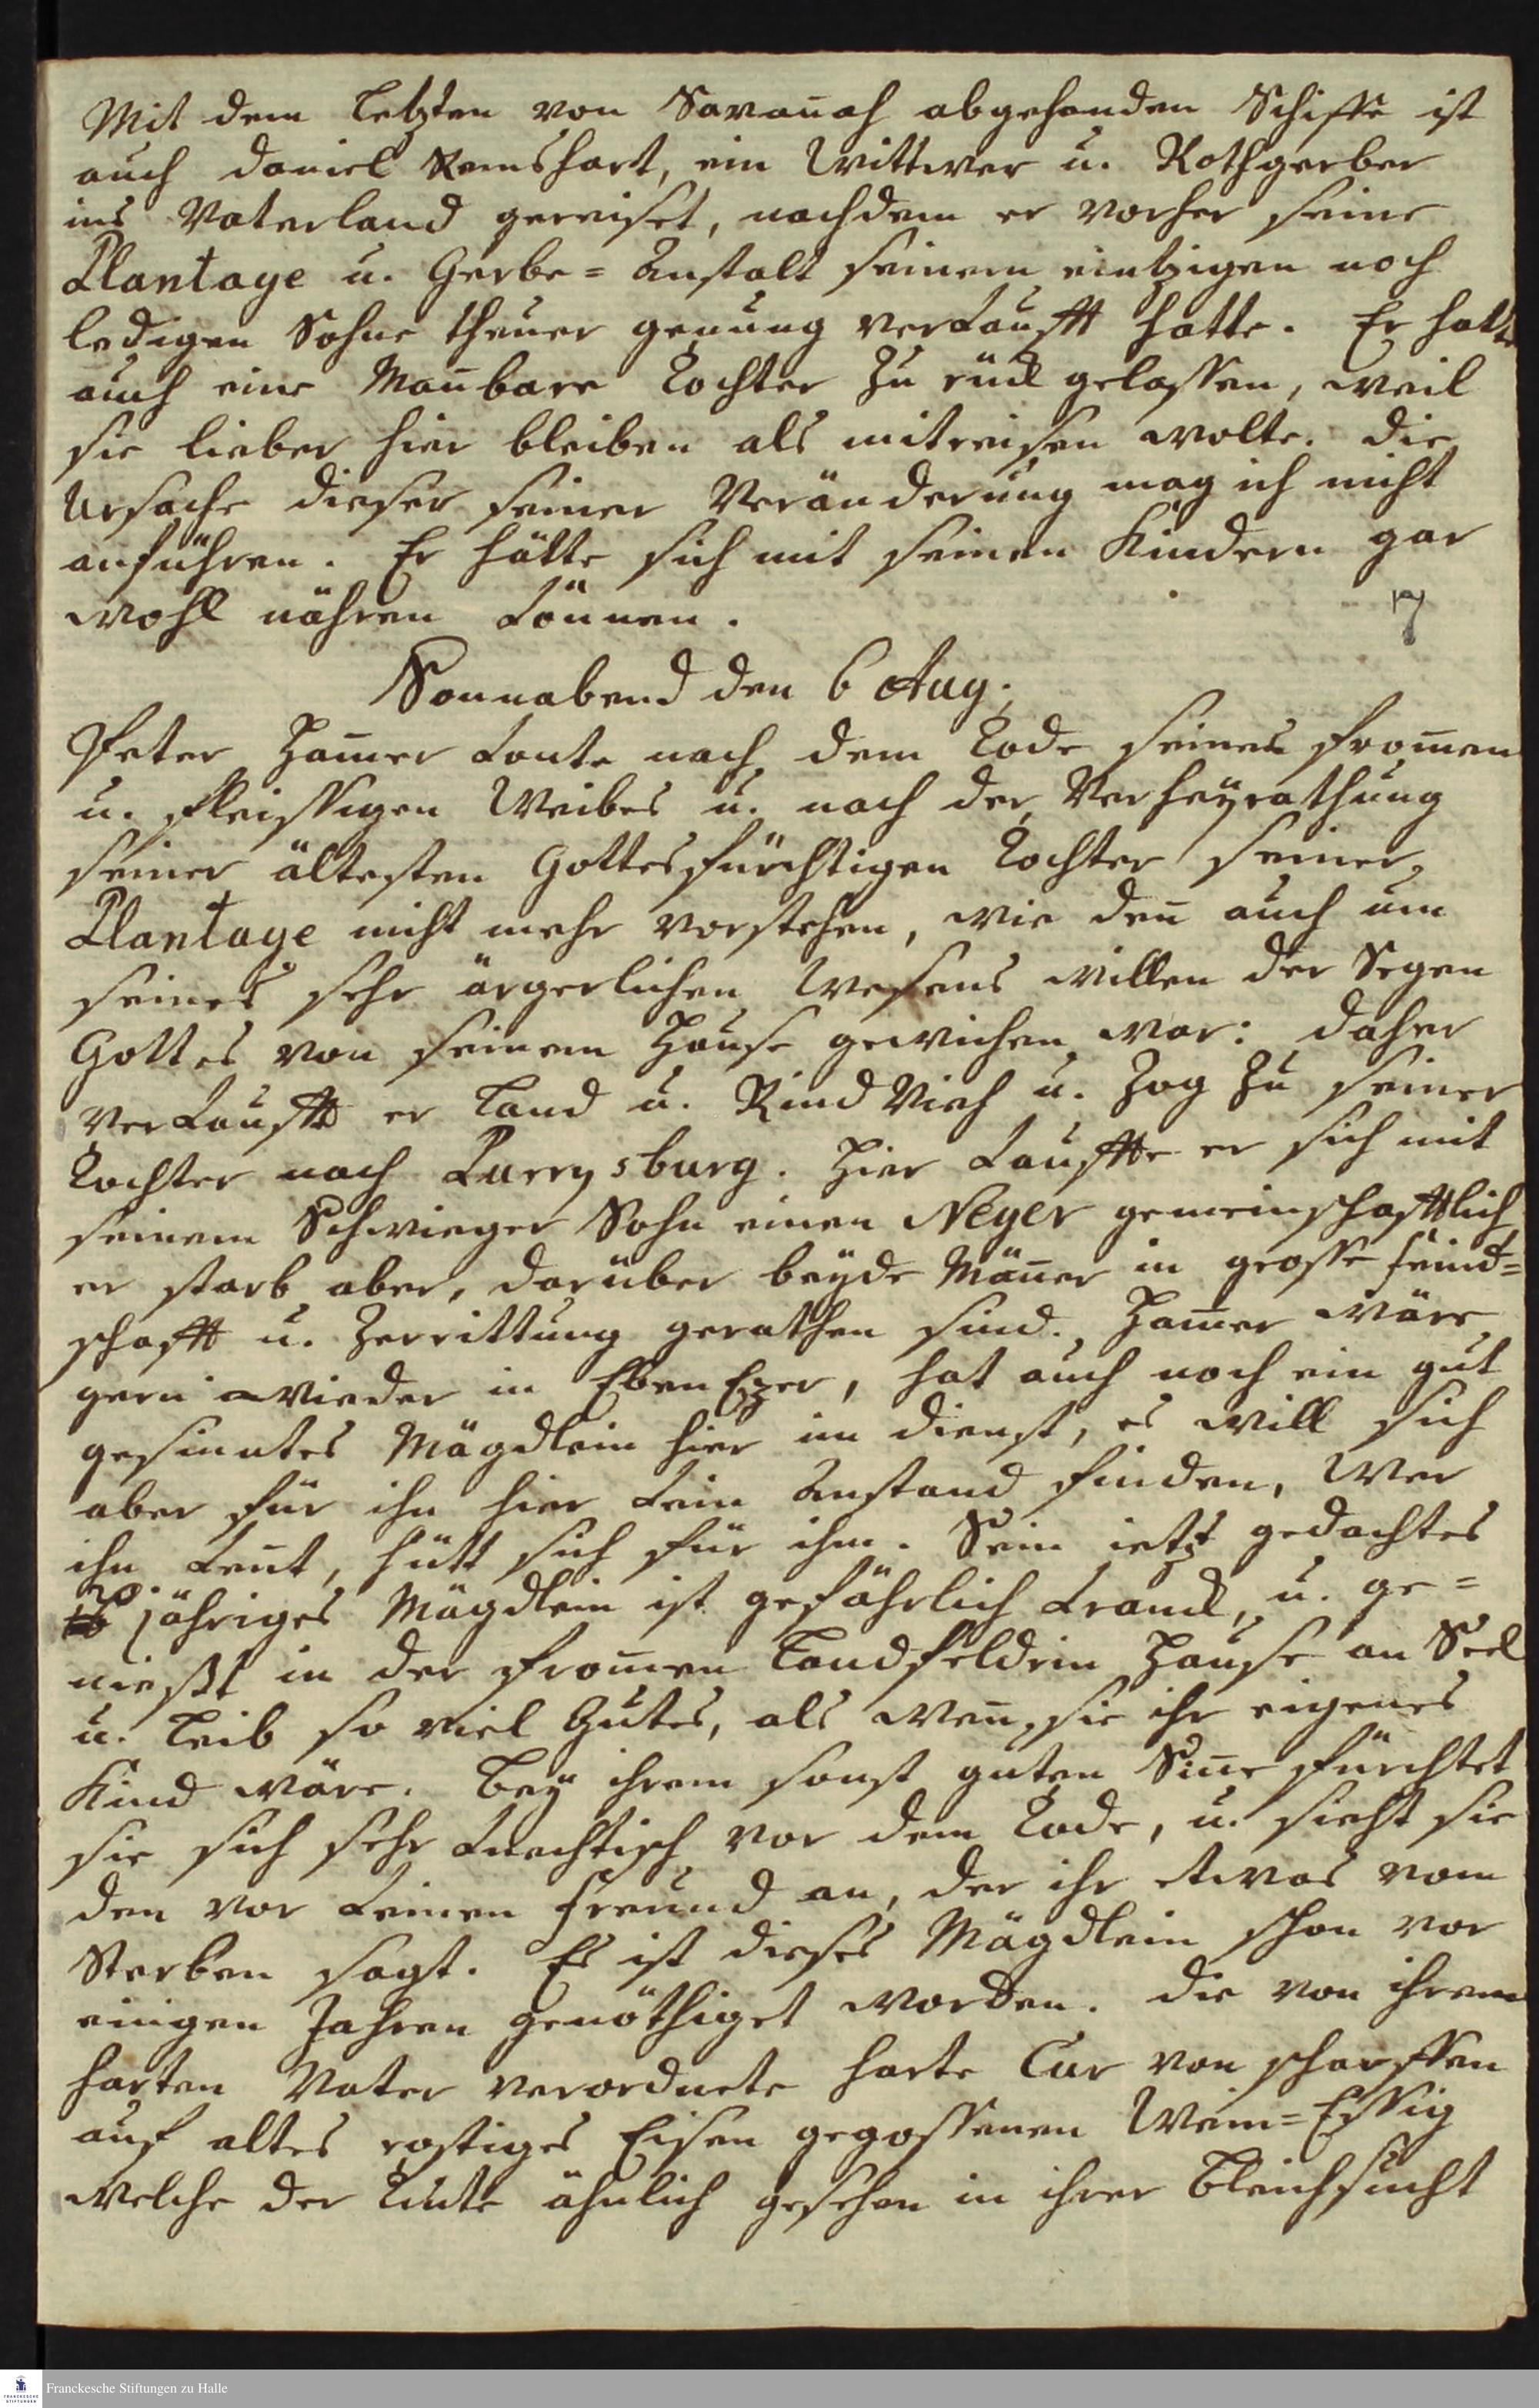 Mit dem letzten von Savañah abgehenden Schiffe ist
auch Daniel Remshart, ein Wittwer u. Rothgerber
ins Vaterland gereiset, nachdem er vorher seine
Plantage u. Gerbe= Anstalt seinem eintzigen noch
ledigen Sohne theuer genung verkaufft hatte. Er hatte
auch eine Mañbare Tochter zu rück gelassen, weil
sie lieber hier bleiben als mitreisen wolte. Die
Ursache dieser seiner Veränderung mag ich nicht
anführen. Er hätte sich mit seinen Kindern gar
wohl nähren können.
7
Sonnabend den 6 Aug.
Peter Ham̃er konte nach dem Tode seines from̃en
u. fleissigen Weibes u. nach der Verheyrathung
seiner ältesten Gottesfürchtigen Tochter seiner
Plantage nicht mehr vorstehen, wie deñ auch um
seines sehr ärgerlichen Wesens willen der Segen
Gottes von seinem Hause gewichen war: daher
verkauffte er Land u. Rind Vieh u. Zog zu seiner
Tochter nach Purrysburg. Hier kauffte er sich mit
seinem Schwieger Sohn einen Neger gemeinschafftlich
er starb aber, darüber beyde Mäñer in grosse feind=
schafft u. Zerrittung gerathen sind. Ham̃er wäre
gern wieder in Eben Ezer, hat auch noch ein gut
gesinntes Mägdlein hier im dienst, es will sich
aber für ihn hier kein Anstand finden, Wer
ihn keñt, hütt sich für ihm. Sein ietzt gedachtes
jähriges Mägdlein ist gefährlich kranck, u. ge=
nießt in der from̃en Landfelderin Hause an Seel
u. Leib so viel Gutes, als weñ sie ihr eigenes
Kind wäre. Bey ihrem sonst guten Siñe fürchtet
sie sich sehr knechtisch vor dem Tode, u. sieht sie
den vor keinen Freund an, der ihr etwas vom
Sterben sagt. Es ist dieses Mägdlein schon vor
einigen Jahren genöthiget worden. die von ihrem
harten Vater verordnete harte Cur von scharffen
auf altes rostiges Eisen gegossenen Wein=Essig
welche der Tinte ähnlich gesehen in ihrer Bleichsucht
Franckesche Stiftungen zu Halle